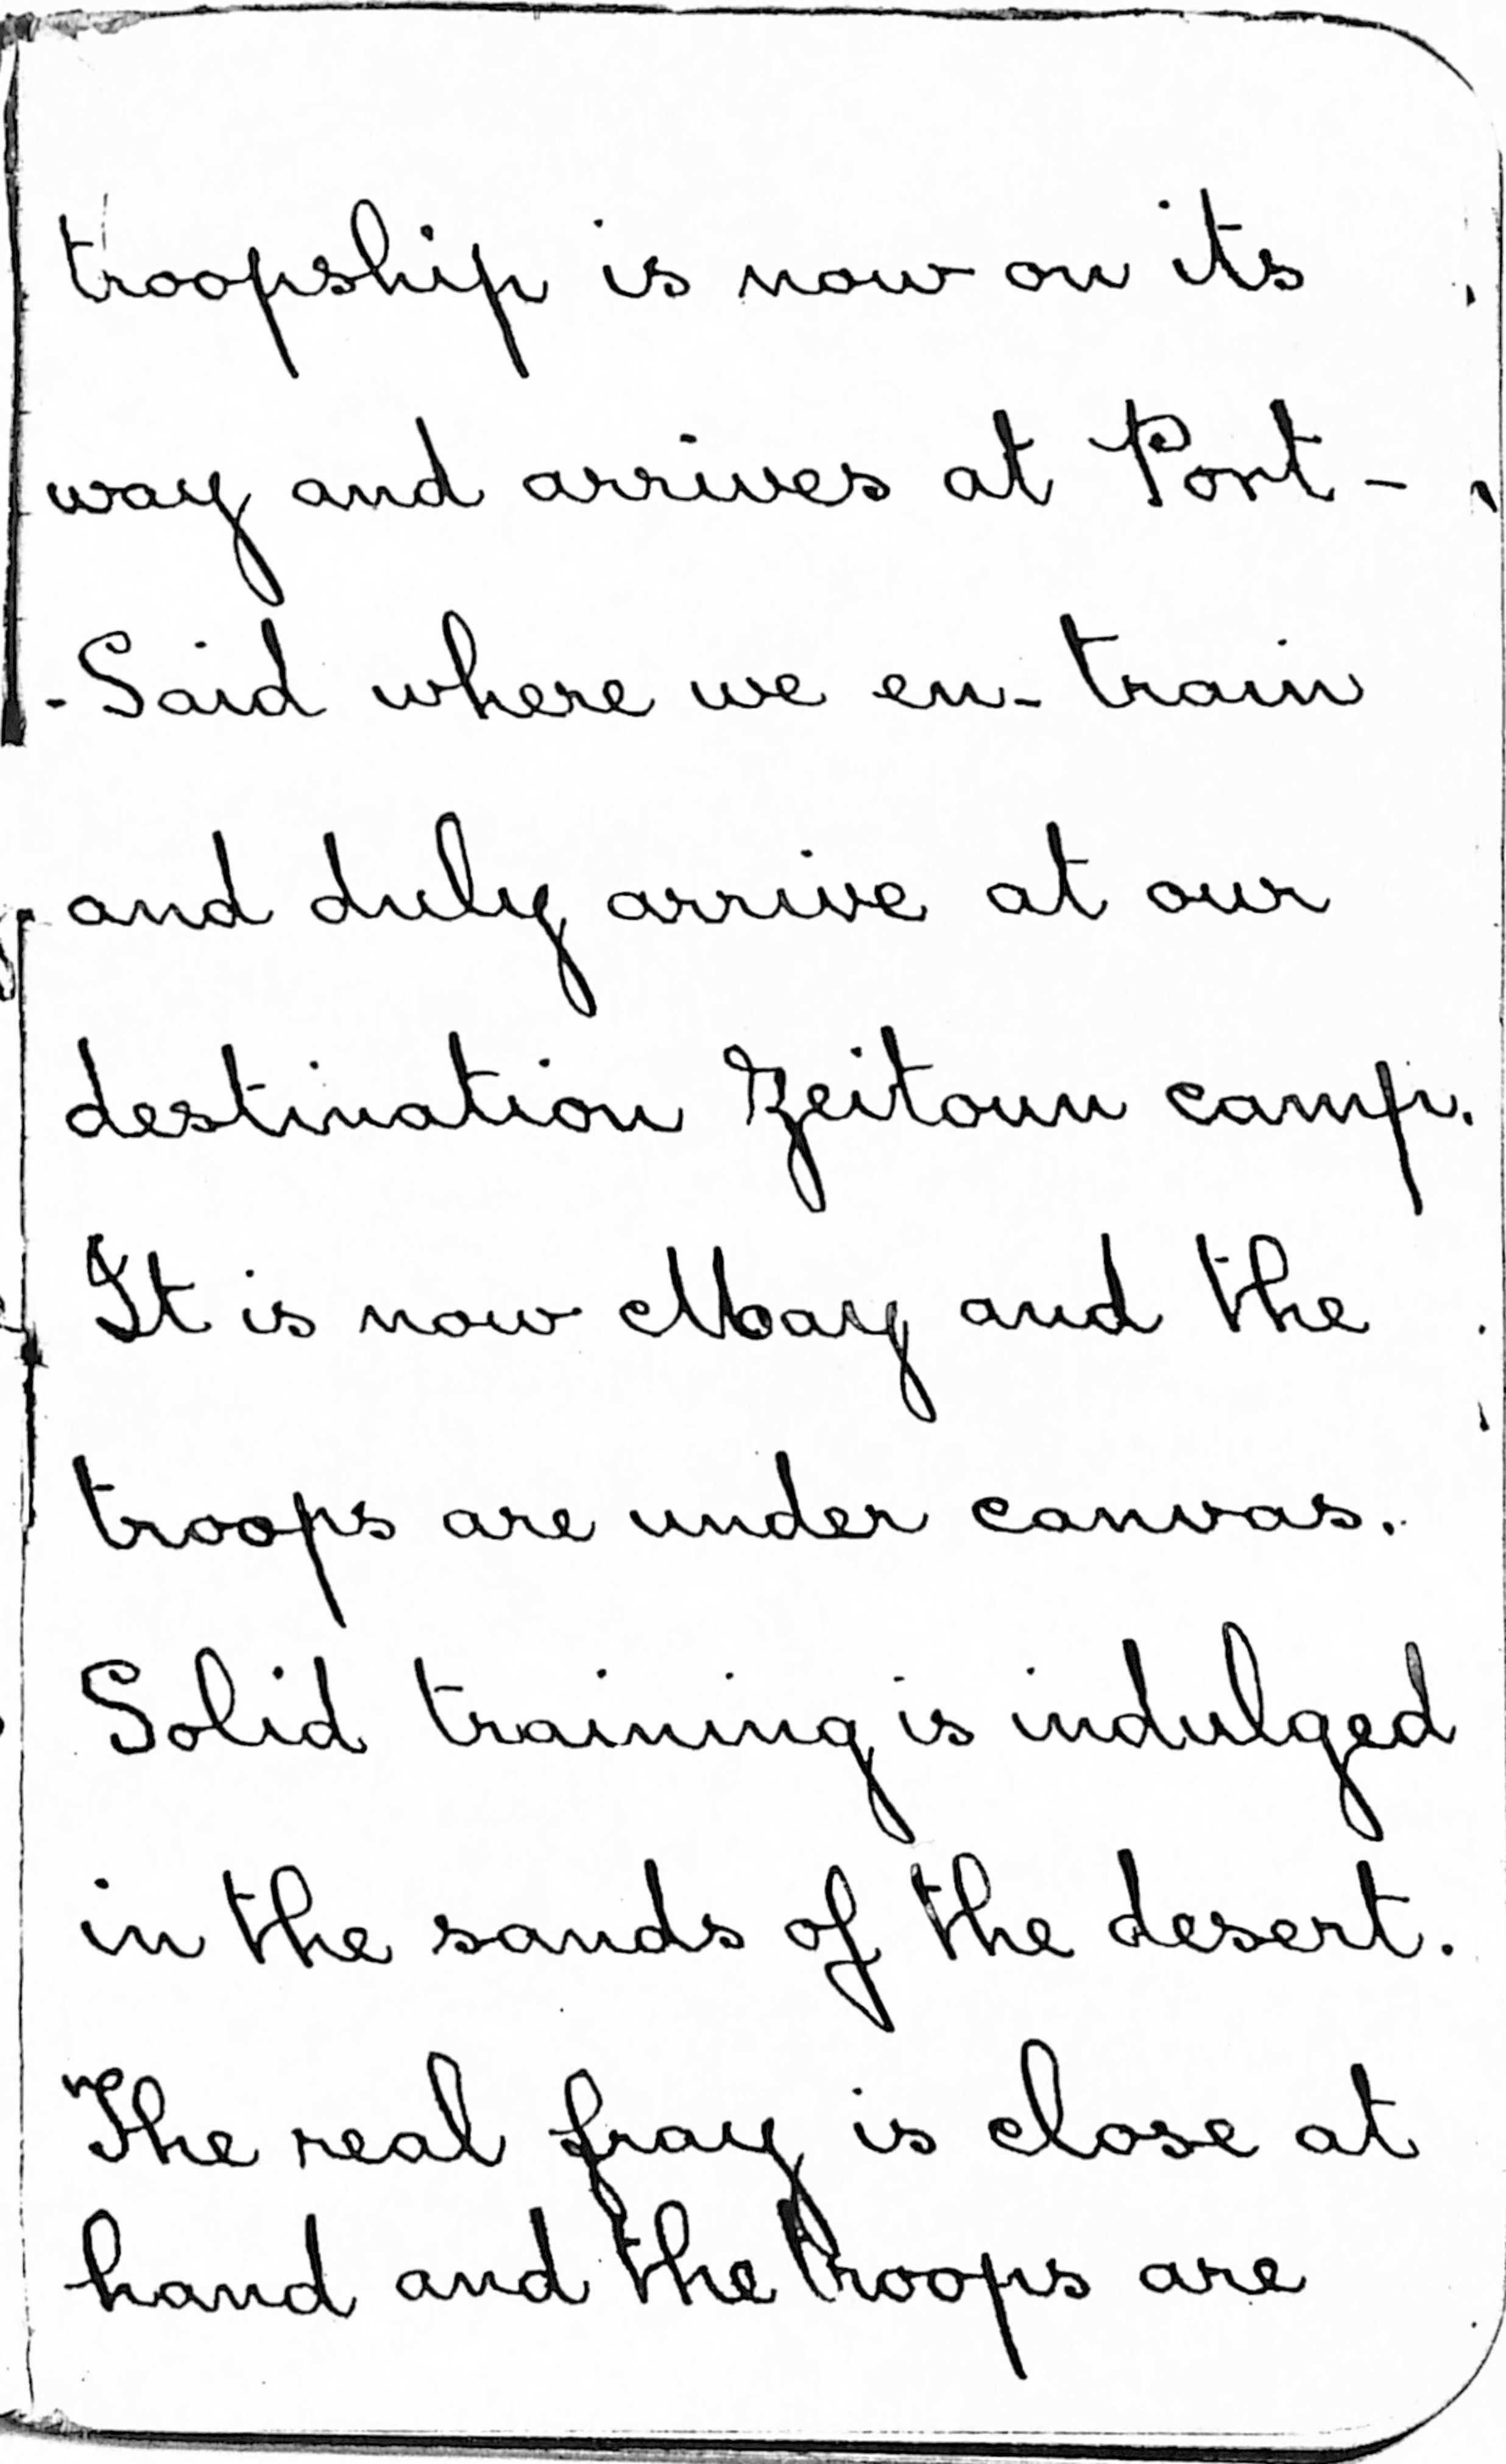 troopship is now on its
way and arrives at Port -
- Said where we en- train
and duly arrive at our
destination Zeitoun camp.
It is now May and the
troops are under canvas.
Solid training is indulged
in the sands of the desert.
The real fray is close at
hand and the troops are